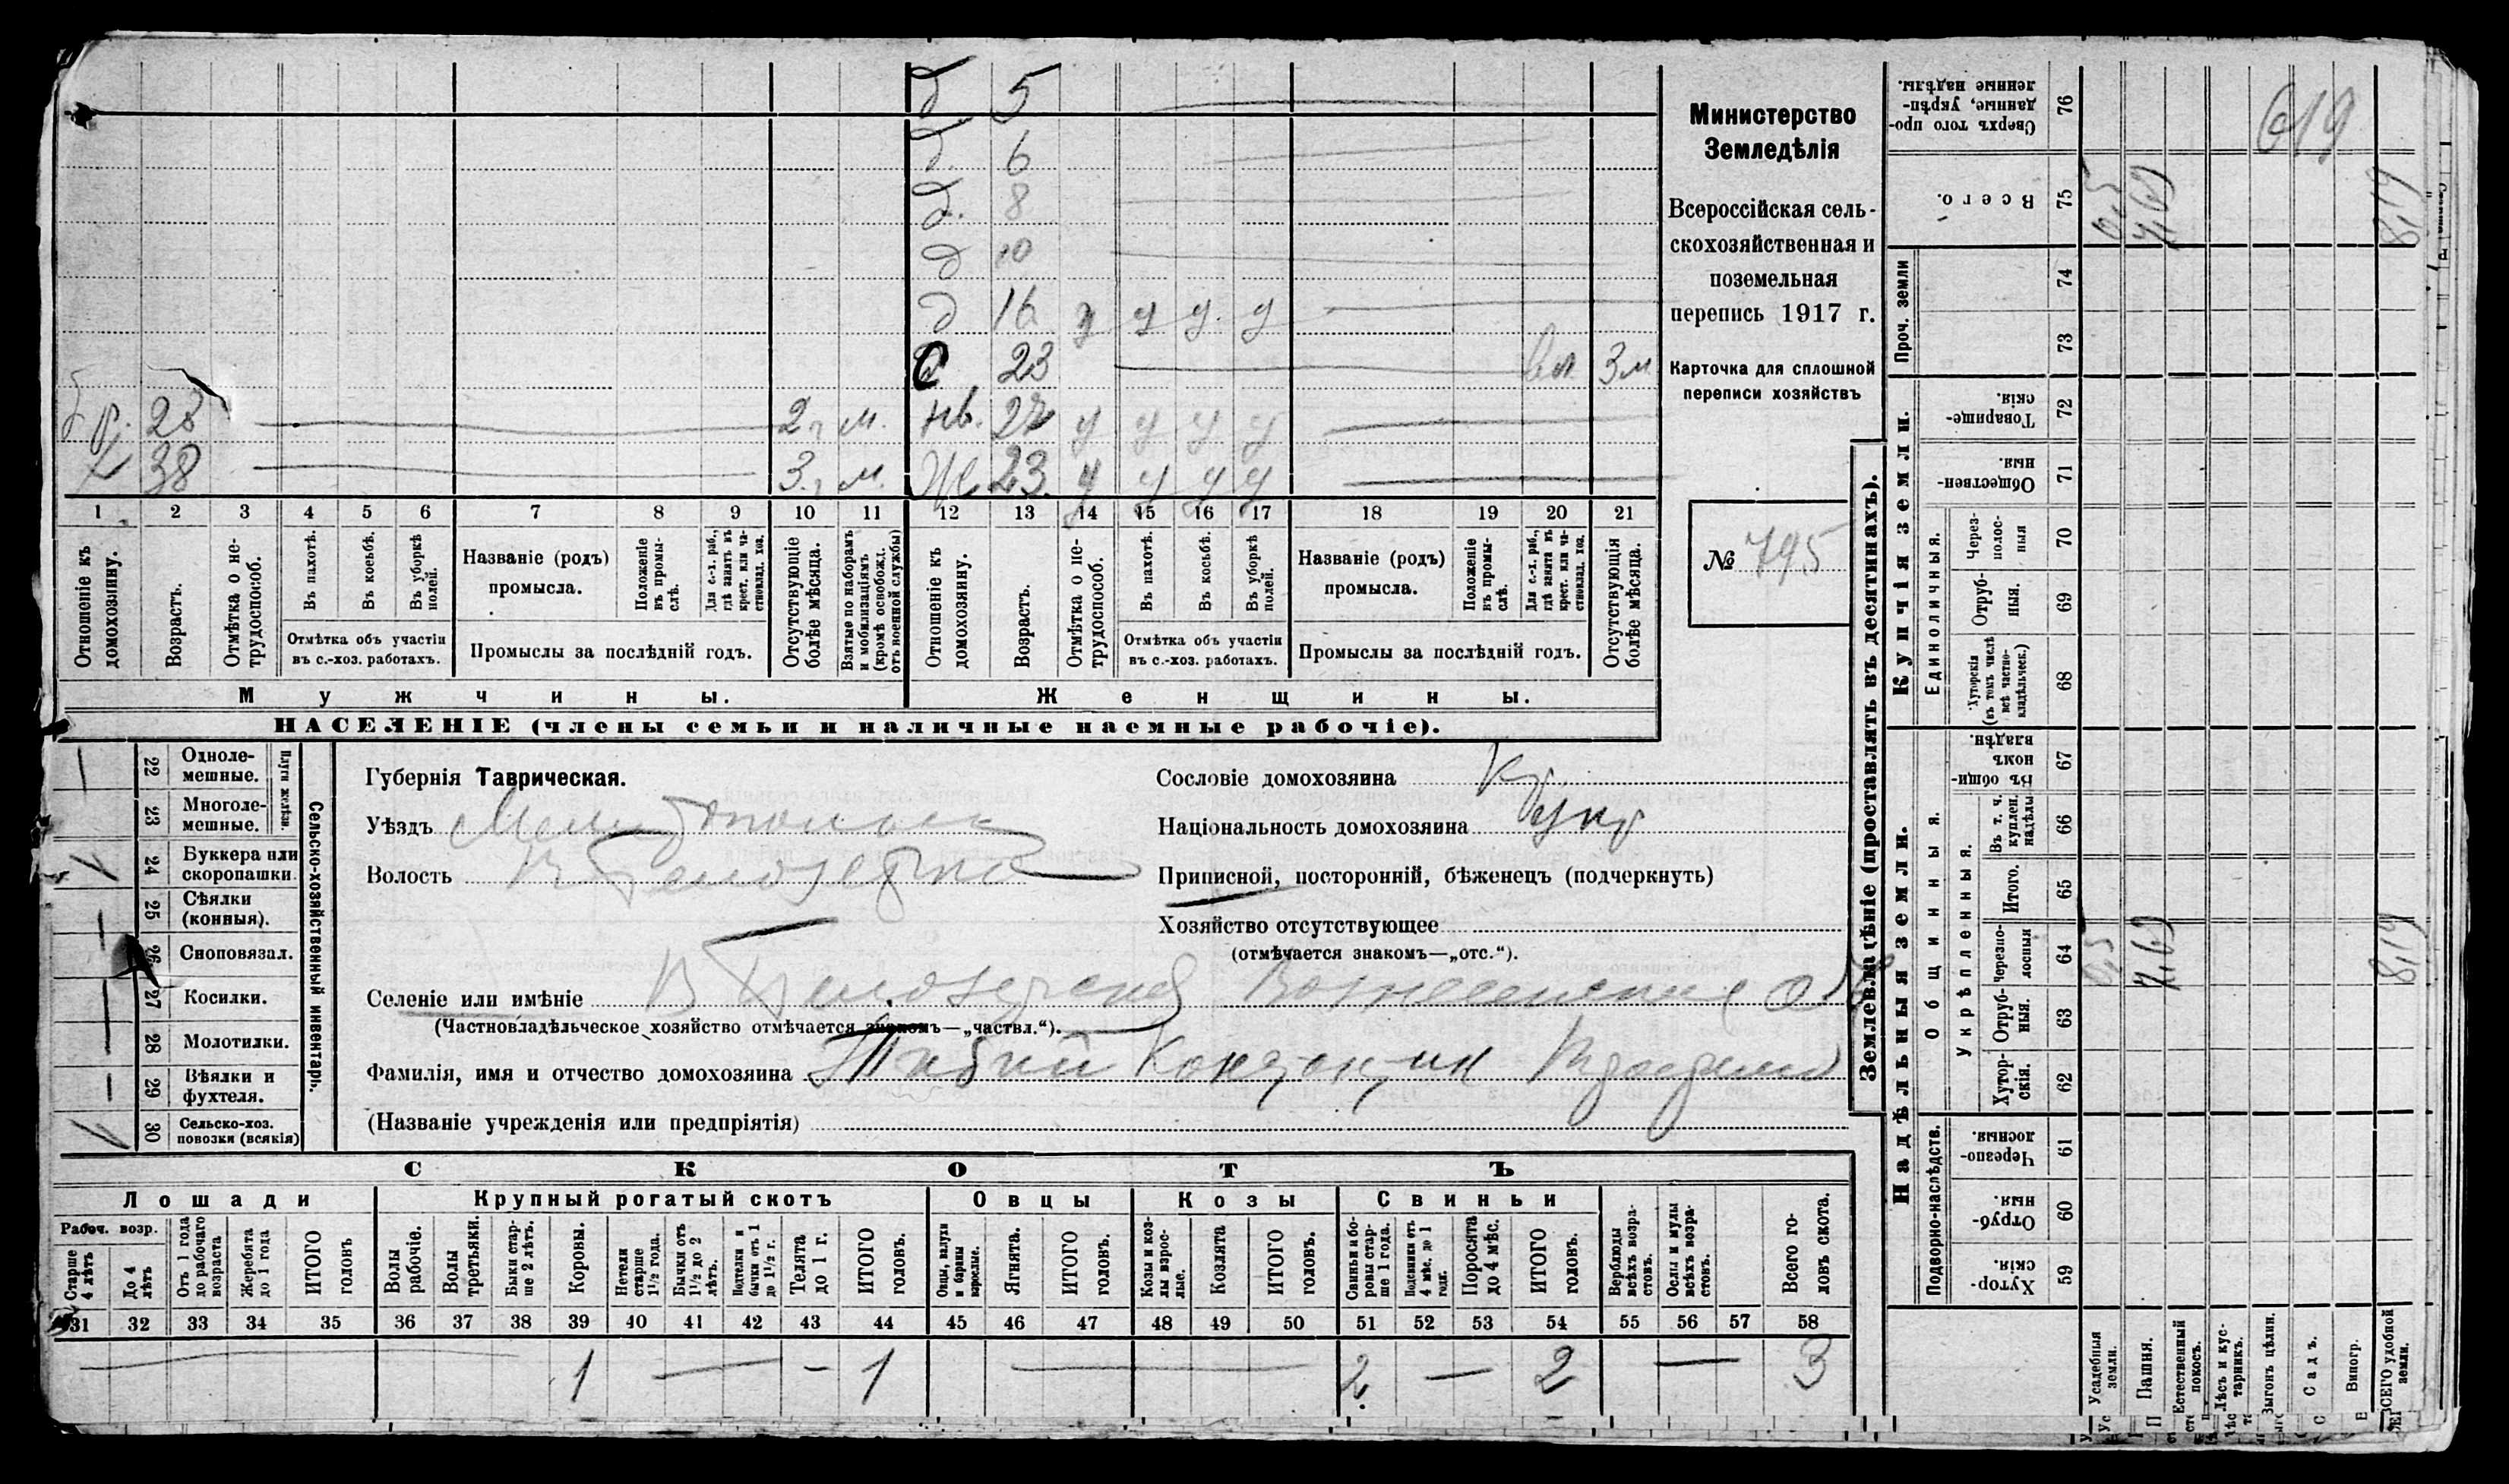 д 5
д. 6
д. 8
д 10
д 16 у у у. у
с 23 вл. 3 м
бр. 28 2 г. м. нв. 27 у у у у
х 38 3 г. м. Ж 23. у у у у
1 2 3 4 5 6 7 8 9 10 11 12 13 14 15 16 17 18 19 20 21
Отношеніе къ домохозяину.
Возрастъ.
Отмѣтка о нетрудоспособ.
Въ пахотѣ.
Въ косьбѣ.
Въ уборкѣ полей.
Отмѣтка объ участіи
въ с.-хоз. работахъ.
Названіе (родъ)
промысла.
Положеніе въ промыслѣ.
Для с.-х. раб., гдѣ занятъ въ крест. или частновлад. хоз.
Промыслы за послѣдній годъ.
Отсутствующіе болѣе мѣсяца.
Взятые по наборамъ и мобилизаціямъ (кромѣ освобожд. отъ военной службы)
Отношеніе къ домохозяину.
Возрастъ.
Отмѣтка о нетрудоспособ.
Въ пахотѣ.
Въ косьбѣ.
Въ уборкѣ полей.
Отмѣтка объ участіи
въ с.-хоз. работахъ.
Названіе (родъ)
промысла.
Положеніе въ промыслѣ.
Для с.-х. раб., гдѣ занята въ крест. или частновлад. хоз.
Промыслы за послѣдній годъ.
Отсутствующія болѣе мѣсяца.
Мужчины.
Женщины.
НАСЕЛЕНІЕ (члены семьи и наличные наемные рабочіе).
Министерство
Земледѣлія
Всероссійская сель-
скохозяйственная и
поземельная
перепись 1917 г.
Карточка для сплошной
переписи хозяйствъ
№ 795
22 Однолемешные.
23 Многолемешные.
Плуги желѣзн.
24 Буккера или скоропашки.
25 Сѣялки (конныя).
26 Сноповязал.
27 Косилки.
28 Молотилки.
29 Вѣялки и фухтеля.
30 Сельско-хоз. повозки (всякія)
Сельско-хозяйственный инвентарь.
Губернія Таврическая.
Уѣздъ Мелитопольск
Волость В Белозерка
Селеніе или имѣніе В Белозерка Вознесенское об
(Частновладѣльческое хозяйство отмѣчается знакомъ—„частвл.“).
Фамилія, имя и отчество домохозяина
(Названіе учрежденія или предпріятія)
Сословіе домохозяина Кр
Національность домохозяина Укр
Приписной, посторонній, бѣженецъ (подчеркнуть)
Хозяйство отсутствующее
(отмѣчается знакомъ—„отс.“).
СКОТЪ
Лошади
Крупный рогатый скотъ
Овцы
Козы
Свиньи
Рабоч. возр.
Старше 4 лѣтъ
До 4 лѣтъ
Отъ 1 года до рабочаго возраста
Жеребята до 1 года
ИТОГО головъ
Волы рабочіе.
Волы третьяки.
Быки старше 2 лѣтъ.
Коровы.
Нетели старше 1½ года.
Бычки отъ 1½ до 2 лѣтъ.
Подтелки и бычки отъ 1 до 1½ г.
Телята до 1 г.
ИТОГО головъ.
Овцы, валухи и бараны взрослые.
Ягнята.
ИТОГО головъ.
Козы и козлы взрослые.
Козлята
ИТОГО головъ.
Свиньи и боровы старше 1 года.
Подсвинки отъ 4 мѣс. до 1 год.
Поросята до 4 мѣс.
ИТОГО головъ.
Верблюды всѣхъ возрастовъ.
Ослы и мулы всѣхъ возрастовъ.
Всего головъ скота.
31 32 33 34 35 36 37 38 39 40 41 42 43 44 45 46 47 48 49 50 51 52 53 54 55 56 57 58
1 — - 1 — 2 — 2 — 3
Землевладѣніе (проставлять въ десятинахъ).
Надѣльныя земли.
Купчія земли.
Проч. земли
Сверхъ того проданные, укрѣпленные надѣлы. 76
619
Всего. 75 0,5 7,69 8,19
74
73
Товарищескія. 72
Общественныя. 71
Единоличныя.
Черезполосныя 70
Отрубныя. 69
Хуторскія (въ томъ числѣ всѣ частновладѣльческ.) 68
Общинныя.
Въ общиномъ владѣн. 67
Укрѣпленныя.
Въ т. ч. куплен. надѣлы 66
Итого. 65
Черезполосныя 64 0,5 7,69 8,19
Отрубныя. 63
Хуторскія. 62
Подворно-наслѣдств.
Черезполосныя. 61
Отрубныя. 60
Хуторскія. 59
Усадебныя земли.
Пашня.
Естественный покосъ.
Лѣсъ и кустарникъ.
Выгонъ цѣлин.
Садъ.
Виногр.
ВСЕГО удобной земли.